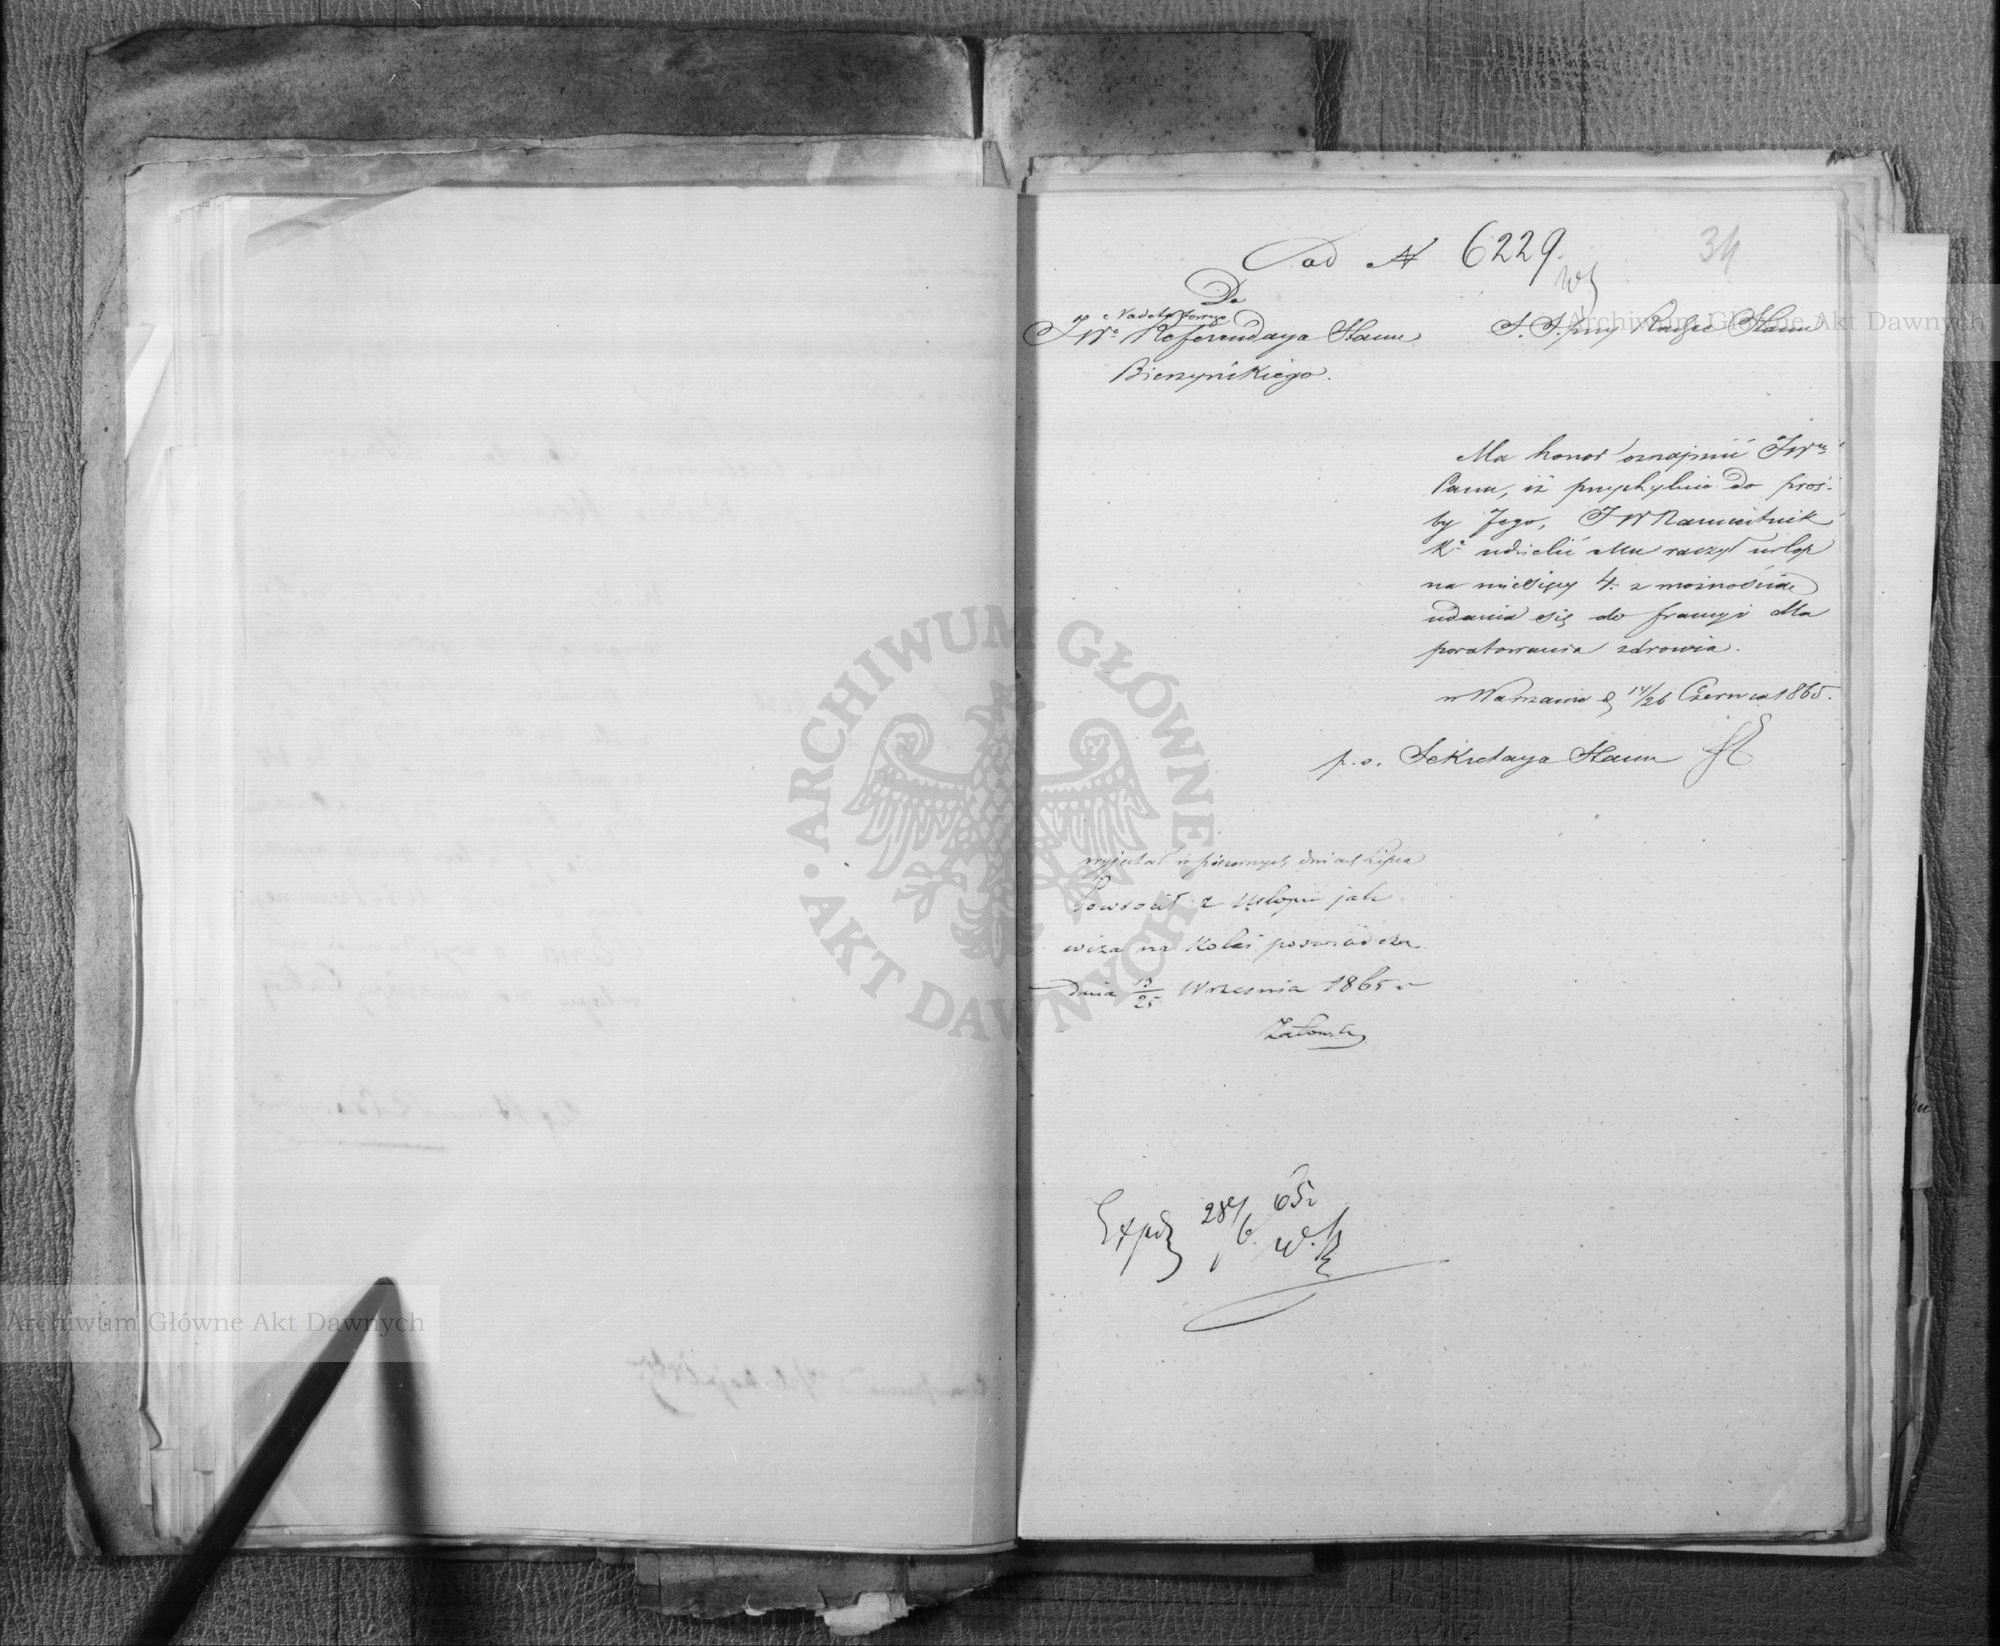 ad N 6229.
34
Do
JWo Referendarza Stanu
Bierzyńskiego.
S. S. przy Radzie Stanu
Ma honor oznajmić JWmu
Panu, iż przychylnie do proś-
by Jego, JW Namiestnik
Ko udzielić Mu raczył urlop
na miesięcy 4. z możnością
udania się do francyi dla
poratowania zdrowia.
w Warszawie d 14/26 Czerwca 1865.
p. o. Sekretarza Stanu
wyjechał w pierwszych dniach Lipca
Powrócił z Urlopu jak
wiza na Kolei poswiadcza
dnia 13/25 Września 1865 r
Expd 28/6 65r
W. K
ARCHIWUM GŁÓWNE AKT DAWNYCH
Archiwum Główne Akt Dawnych
Archiwum Główne Akt Dawnych